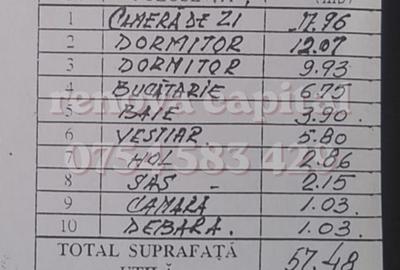 1 CAMERA DE ZI 7.96
2 DORMITOR 12.07
3 DORMITOR 9.93
4 BUCĂTARIE 6.75
5 BAIE 3.90.
6 VESTIAR. 5.80
7 HOL 2.86
8 SAS - 2.15
9 CAMARĂ 1.03.
10 DEBARA. 1.03.
TOTAL SUPRAFAȚĂ 57.48
UTILĂ
renova capital